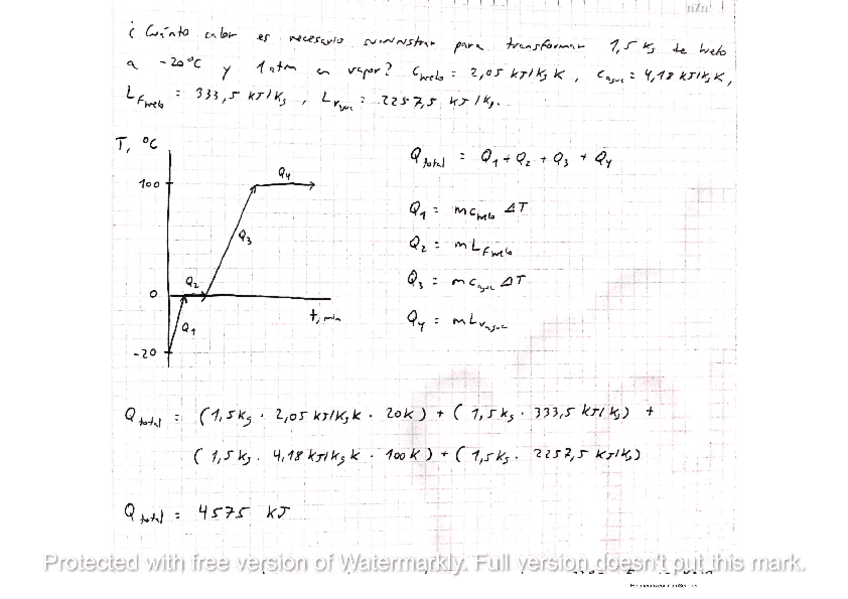 ¿Cuánto calor es necesario suministrar para transformar 1,5 kg de hielo
a -20°C y 1 atm en vapor? Chielo = 2,05 kJ/kg K, Cagua = 4,18 kJ/kg K,
LFhielo = 333,5 kJ/kg, Lvagua = 2257,5 kJ/kg.
T, °C
100
0
-20
Q1
Q2
Q3
Q4
t, min
Qtotal = Q1 + Q2 + Q3 + Q4
Q1 = m chielo ΔT
Q2 = m LFhielo
Q3 = m cagua ΔT
Q4 = m Lvagua
Qtotal = (1,5 kg · 2,05 kJ/kg K · 20K) + (1,5 kg · 333,5 kJ/kg) +
(1,5 kg · 4,18 kJ/kg K · 100 K) + (1,5 kg · 2257,5 kJ/kg)
Qtotal = 4575 kJ
Protected with free version of Watermarkly. Full version doesn't put this mark.